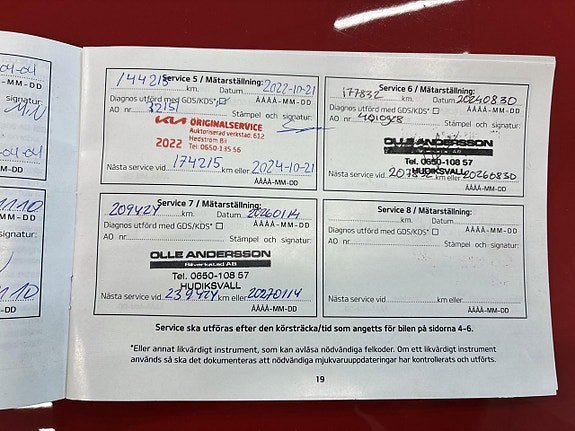 04-04
-MM-DD
signatur:
04-04
-MM-DD
1110
-MM-DD
signatur:
110
-MM-DD
Service 5 / Mätarställning:
144215 km. Datum 2022-10-21
Diagnos utförd med GDS/KDS* ÅÅÅÅ-MM-DD
AO nr. 32151 Stämpel och signatur:
KIA ORIGINALSERVICE
Auktoriserad verkstad: 612
Hedström Bil
2022 Tel: 0650-135 56
Nästa service vid 174215 km eller 2024-10-21
ÅÅÅÅ-MM-DD
Service 6 / Mätarställning:
177832 km. Datum 20240830
Diagnos utförd med GDS/KDS* ÅÅÅÅ-MM-DD
AO nr. Stämpel och signatur:
OLLE ANDERSSON
Tel. 0650-108 57
HUDIKSVALL
Nästa service vid 207832 km eller 20260830
ÅÅÅÅ-MM-DD
Service 7 / Mätarställning:
209424 km. Datum 20260114
Diagnos utförd med GDS/KDS* ÅÅÅÅ-MM-DD
AO nr. Stämpel och signatur:
OLLE ANDERSSON
Bilverkstad AB
Tel. 0650-108 57
HUDIKSVALL
Nästa service vid 239424 km eller 20270114
ÅÅÅÅ-MM-DD
Service 8 / Mätarställning:
km. Datum
Diagnos utförd med GDS/KDS* ÅÅÅÅ-MM-DD
AO nr. Stämpel och signatur:
Nästa service vid km eller
ÅÅÅÅ-MM-DD
Service ska utföras efter den körsträcka/tid som angetts för bilen på sidorna 4-6.
*Eller annat likvärdigt instrument, som kan avläsa nödvändiga felkoder. Om ett likvärdigt instrument
används så ska det dokumenteras att nödvändiga mjukvaruuppdateringar har kontrollerats och utförts.
19